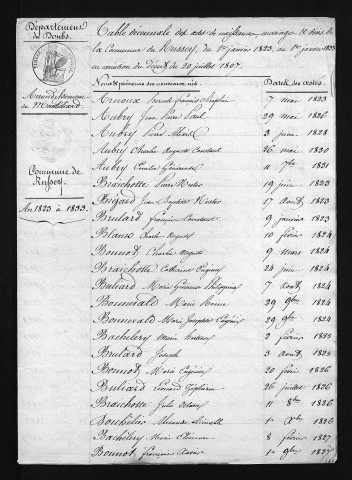 Département
du Doubs.
Arrondissement
de Montbéliard
Commune de
Russey.
An 1823 à 1833.
Table décennale des actes de naissances, mariages et décès de
la Commune du Russey, du 1er janvier 1823, au 1er janvier 1833
en exécution du Décret du 20 juillet 1807.
Noms et prénoms des nouveaux nés. Dates des actes.
Arnoux François 7 mai 1833
Aubry Jean Pierre Paul 29 mai 1826
Aubry Pierre 3 juin 1828
Aubry Charles Auguste Constant 26 mai 1830
Aubry Emilie 11 7bre 1831
Braichotte 19 juin 1823
Bugard Jean Baptiste 17 août 1823
Brulard François Constant 9 janvier 1823
Blanc Charles Auguste 10 févr 1824
Bonnot Charles Auguste 9 mars 1824
Braichotte Catherine Eugénie 24 juin 1824
Buliard Marie Philippine 7 août 1824
Bonnevald Marie 29 9bre 1824
Bonnevald Marie Josephe Eugénie 29 9bre 1824
Bachelery Marie 2 février 1825
Brulard Joseph 3 août 1825
Bonnot Marie Eugénie 20 févr 1826
Buliard 26 juillet 1826
Braichotte Julie 11 8bre 1826
1er Xbre 1826
Bachelery Marie 8 février 1827
Bonnot François Xavier 1er 9bre 1827